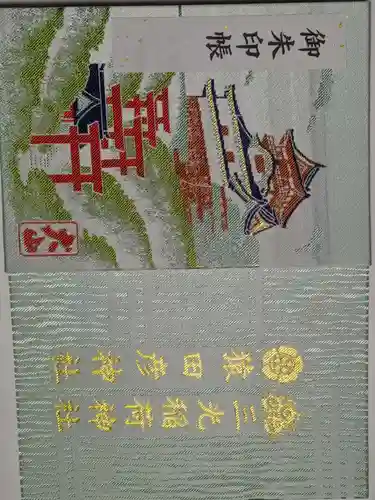 御朱印帳
犬山
猿田彦神社
三光稲荷神社